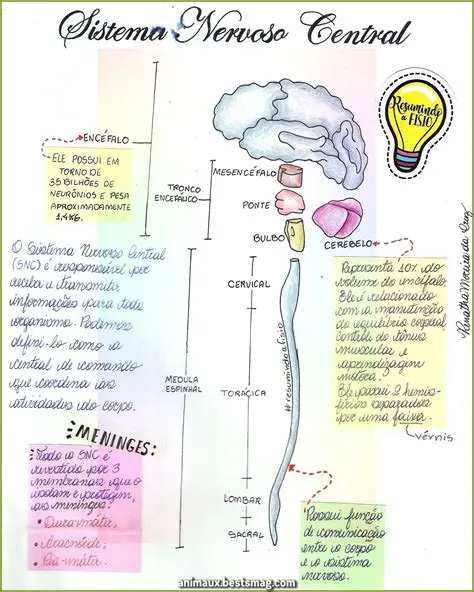 Sistema Nervoso Central
Resumindo
a FISIO
ENCÉFALO
ELE POSSUI EM
TORNO DE
35 BILHÕES DE
NEURÔNIOS E PESA
APROXIMADAMENTE
1,4KG.
TRONCO
ENCEFÁLICO
MESENCÉFALO
PONTE
BULBO
CEREBELO
Renatha Moreira da Cruz
O Sistema Nervoso Central
(SNC) é responsável por
receber e transmitir
informações para todo
organismo. Podemos
defini-lo como a
central de comando
que coordena as
atividades do corpo.
Representa 10% do
volume do encéfalo.
Ele é relacionado
com a manutenção
do equilíbrio corporal
controle do tônus
muscular e
aprendizagem
motora.
Ele possui 2 hemis-
férios separados
por uma faixa.
Vérmis
CERVICAL
MEDULA
ESPINHAL
TORÁCICA
#resumindoafisio
LOMBAR
SACRAL
MENINGES:
Todo o SNC é
revestido por 3
membranas que o
isolam e protegem,
as meninges:
• Dura-máter;
• Aracnóide;
• Pia-máter.
Possui função
de comunicação
entre o corpo
e o sistema
nervoso.
animaux.bestsmag.com